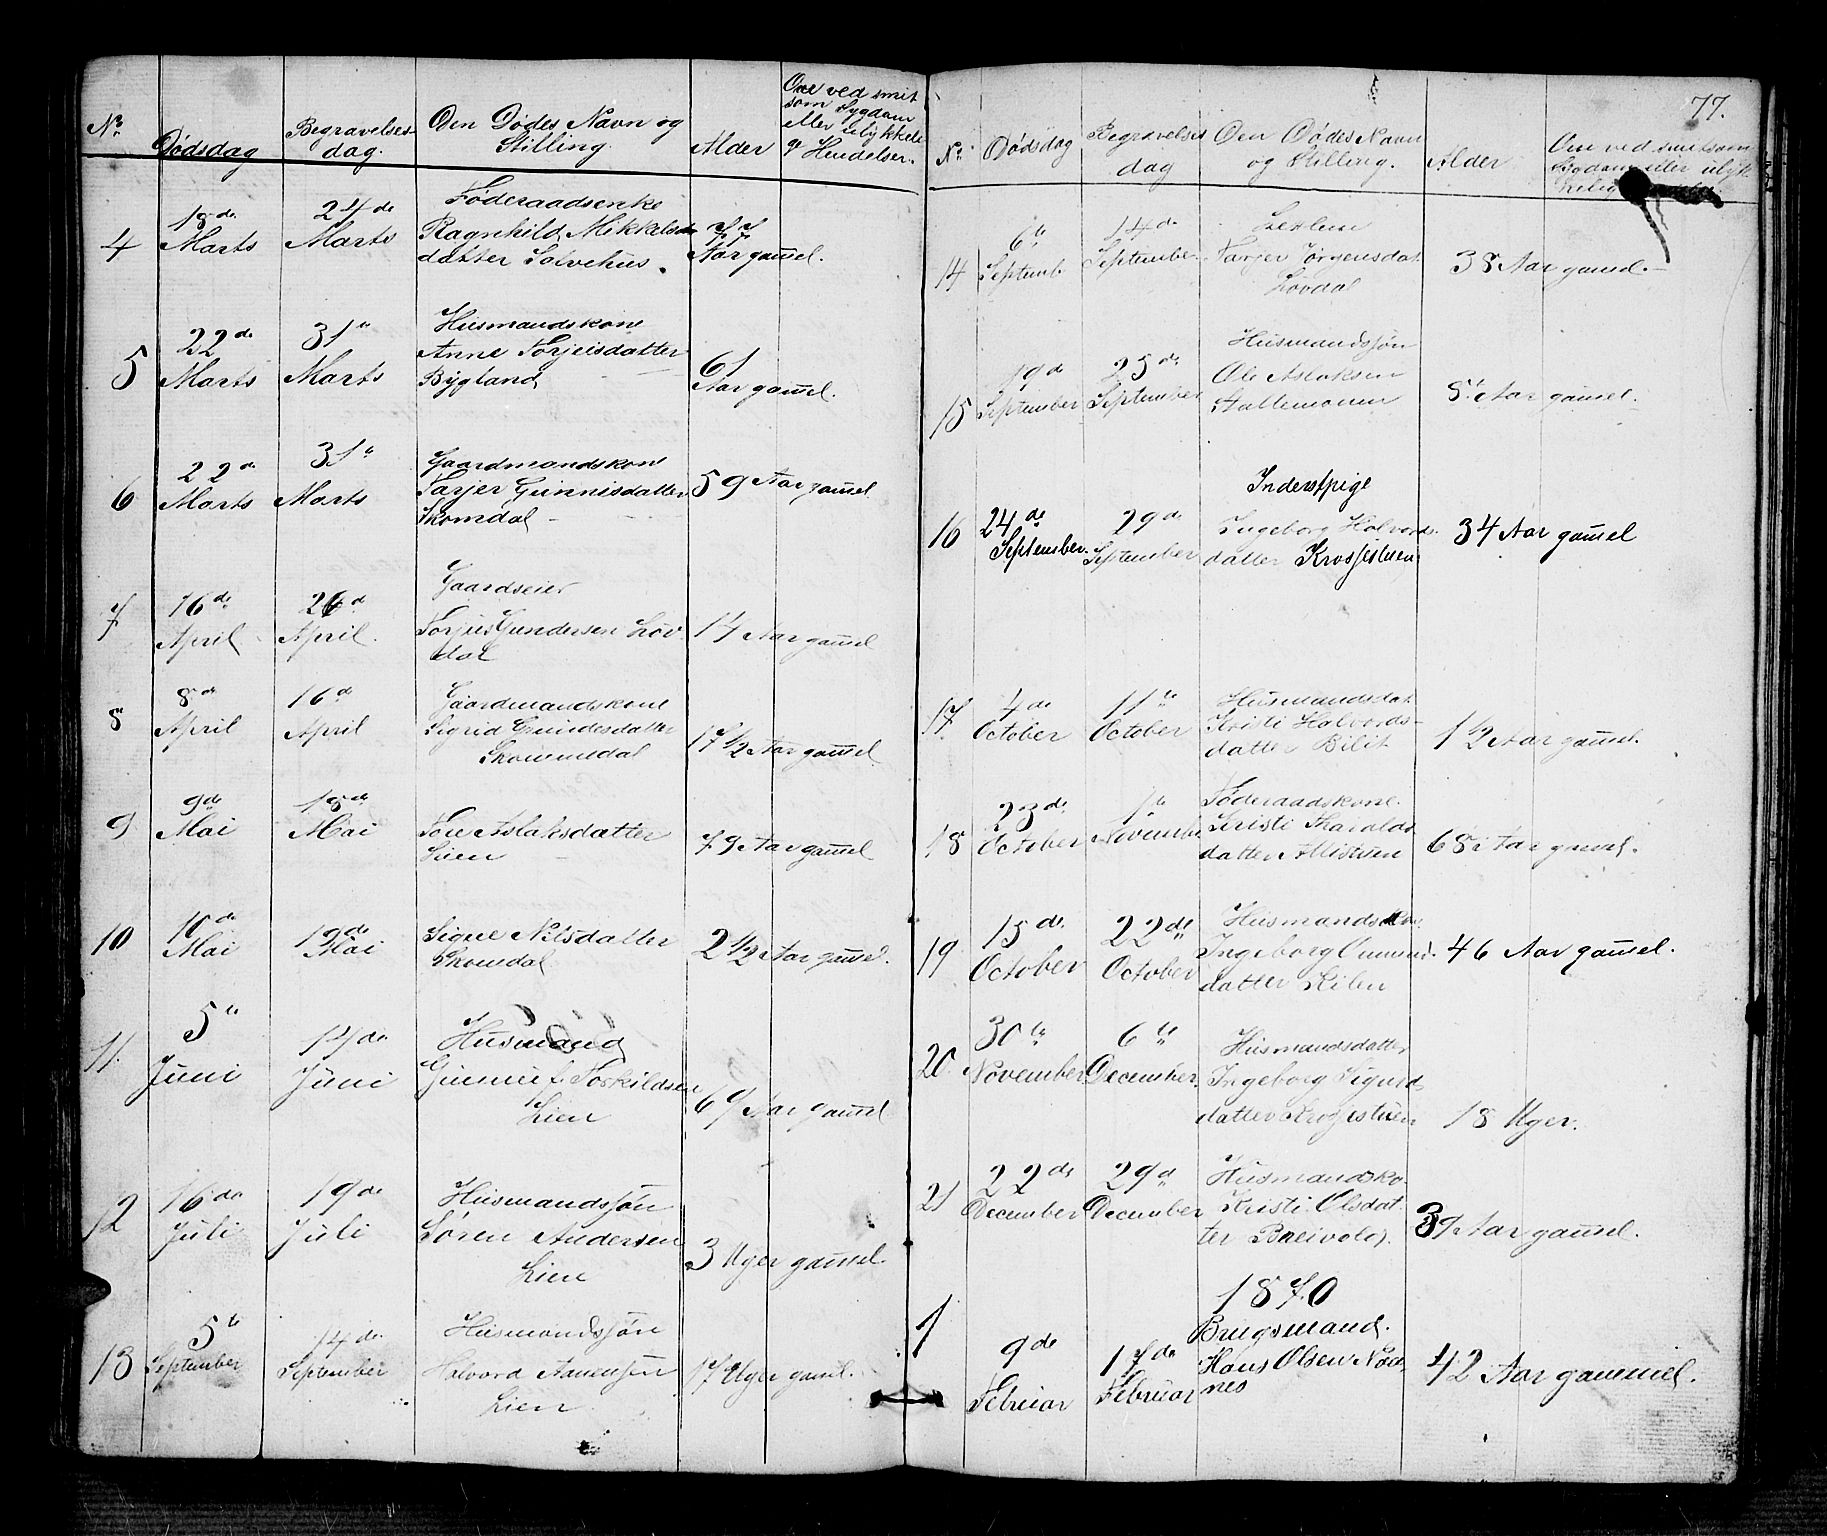 No.
Dødsdag
Begravelses-
dag.
Den Dødes Navn og
Stilling.
Alder
Om ved smit
som Sygdom
eller ulykkelig
Hendelser.
4
18de
Marts
24de
Marts
Føderaadsenke
Ragnhild Mikkels
datter Solvehus.
77
Aar gam̅el.
5
22de
Marts
31te
Marts
Husmandskone
Anne Torjeisdatter
Bygland
61
Aar gam̅el.
6
22de
Marts
31te
Marts
Gaardmandskone
Tarjer Gunnisdatter
Skomdal
59 Aar gam̅el
7
16de
April
April.
Gaardseier
Torjus Gundersen Løv
dal
Aar gam̅el
8
8de
April
16de
April
Gaardmandskone
Sigrid Gundesdatter
17 1/2 Aar gam̅el
9
9de
Mai
18de
Mai
Tone Aslaksdatter
Lien
Aar gam̅el
10
Mai
19de
Mai
Signe Nilsdatter
Skomdal
2 1/2 Aar gam̅el.
11.
5te
Juni
14de
Juni
Husmand
Torkildsen
Lien
69 Aar gam̅el
12
16de
Juli
19de
Juli
Husmandssøn
Søren Andersen
Lien
3 Uger gam̅el.
13
5te
September
14de
September
Husmandssøn
Halvord Aanensøn
Lien
17 Uger gam̅el.
77.
No.
Dødsdag
Begravelses
dag
Den Dødes Navn
og Stilling.
Alder
Om ved smitsom
Sygdom eller ulyk
14
6te
Septemb
14de
September
Tarjer Jørgensdat
Løvdal
38 Aar gam̅el.
15
19de
September
25de
September
Husmandssøn
Ole Aslaksen
Aar gam̅el.
16
24de
September.
29de
September
Inderstpige
Ingeborg Halvords
datter Krossestuen
34 Aar gam̅el
17.
4de
October
11te
October
Husmandsdat
Kristi Halvords-
datter Bilit
12 Aar gam̅el.
18
23de
October
1te
November
Føderaadskone.
Kristi Haralds
datter
68 Aar gam̅el.
19
15de
October
22de
October
Husmandsko
Ingeborg Omund
datter Kilen
46 Aar gam̅el.
20
30te
November
6te
December.
Husmandsdatter
Ingeborg Sigurd
datter Krossestuen
18 Uger.
21
22de
December
29de
December
Husmandsko
Kristi Olsdat
ter Breivold.
39 Aar gam̅el.
1870
1
9de
Februar
17de
Februar
Brugsmand.
Hans Olsen Nød
nes
42 Aar gammel.